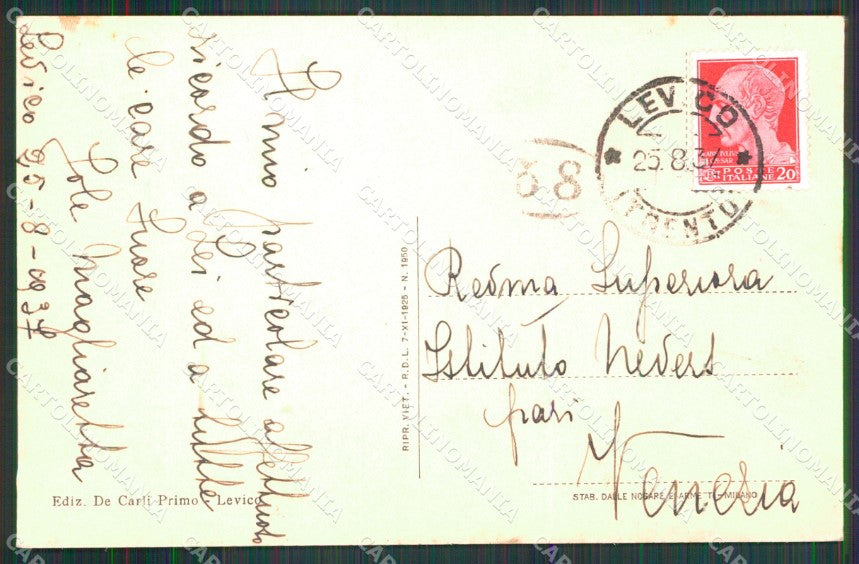 Il mio particolare affettuoso
ricordo a Lei ed a tutte
le care Suore
Iole Magliaretta
Levico 25-8-937
LEVICO
25.8.37
(TRENTO)
38
POSTE
ITALIANE 20
Revma Superiora
Istituto Nevers
pari
Venezia
RIPR. VIET. - R.D.L. 7-XI-1925 - N. 1950
Ediz. De Carli Primo - Levico
STAB. DALLE NOGARE E ARMETTI - MILANO
CARTOLINOMANIA